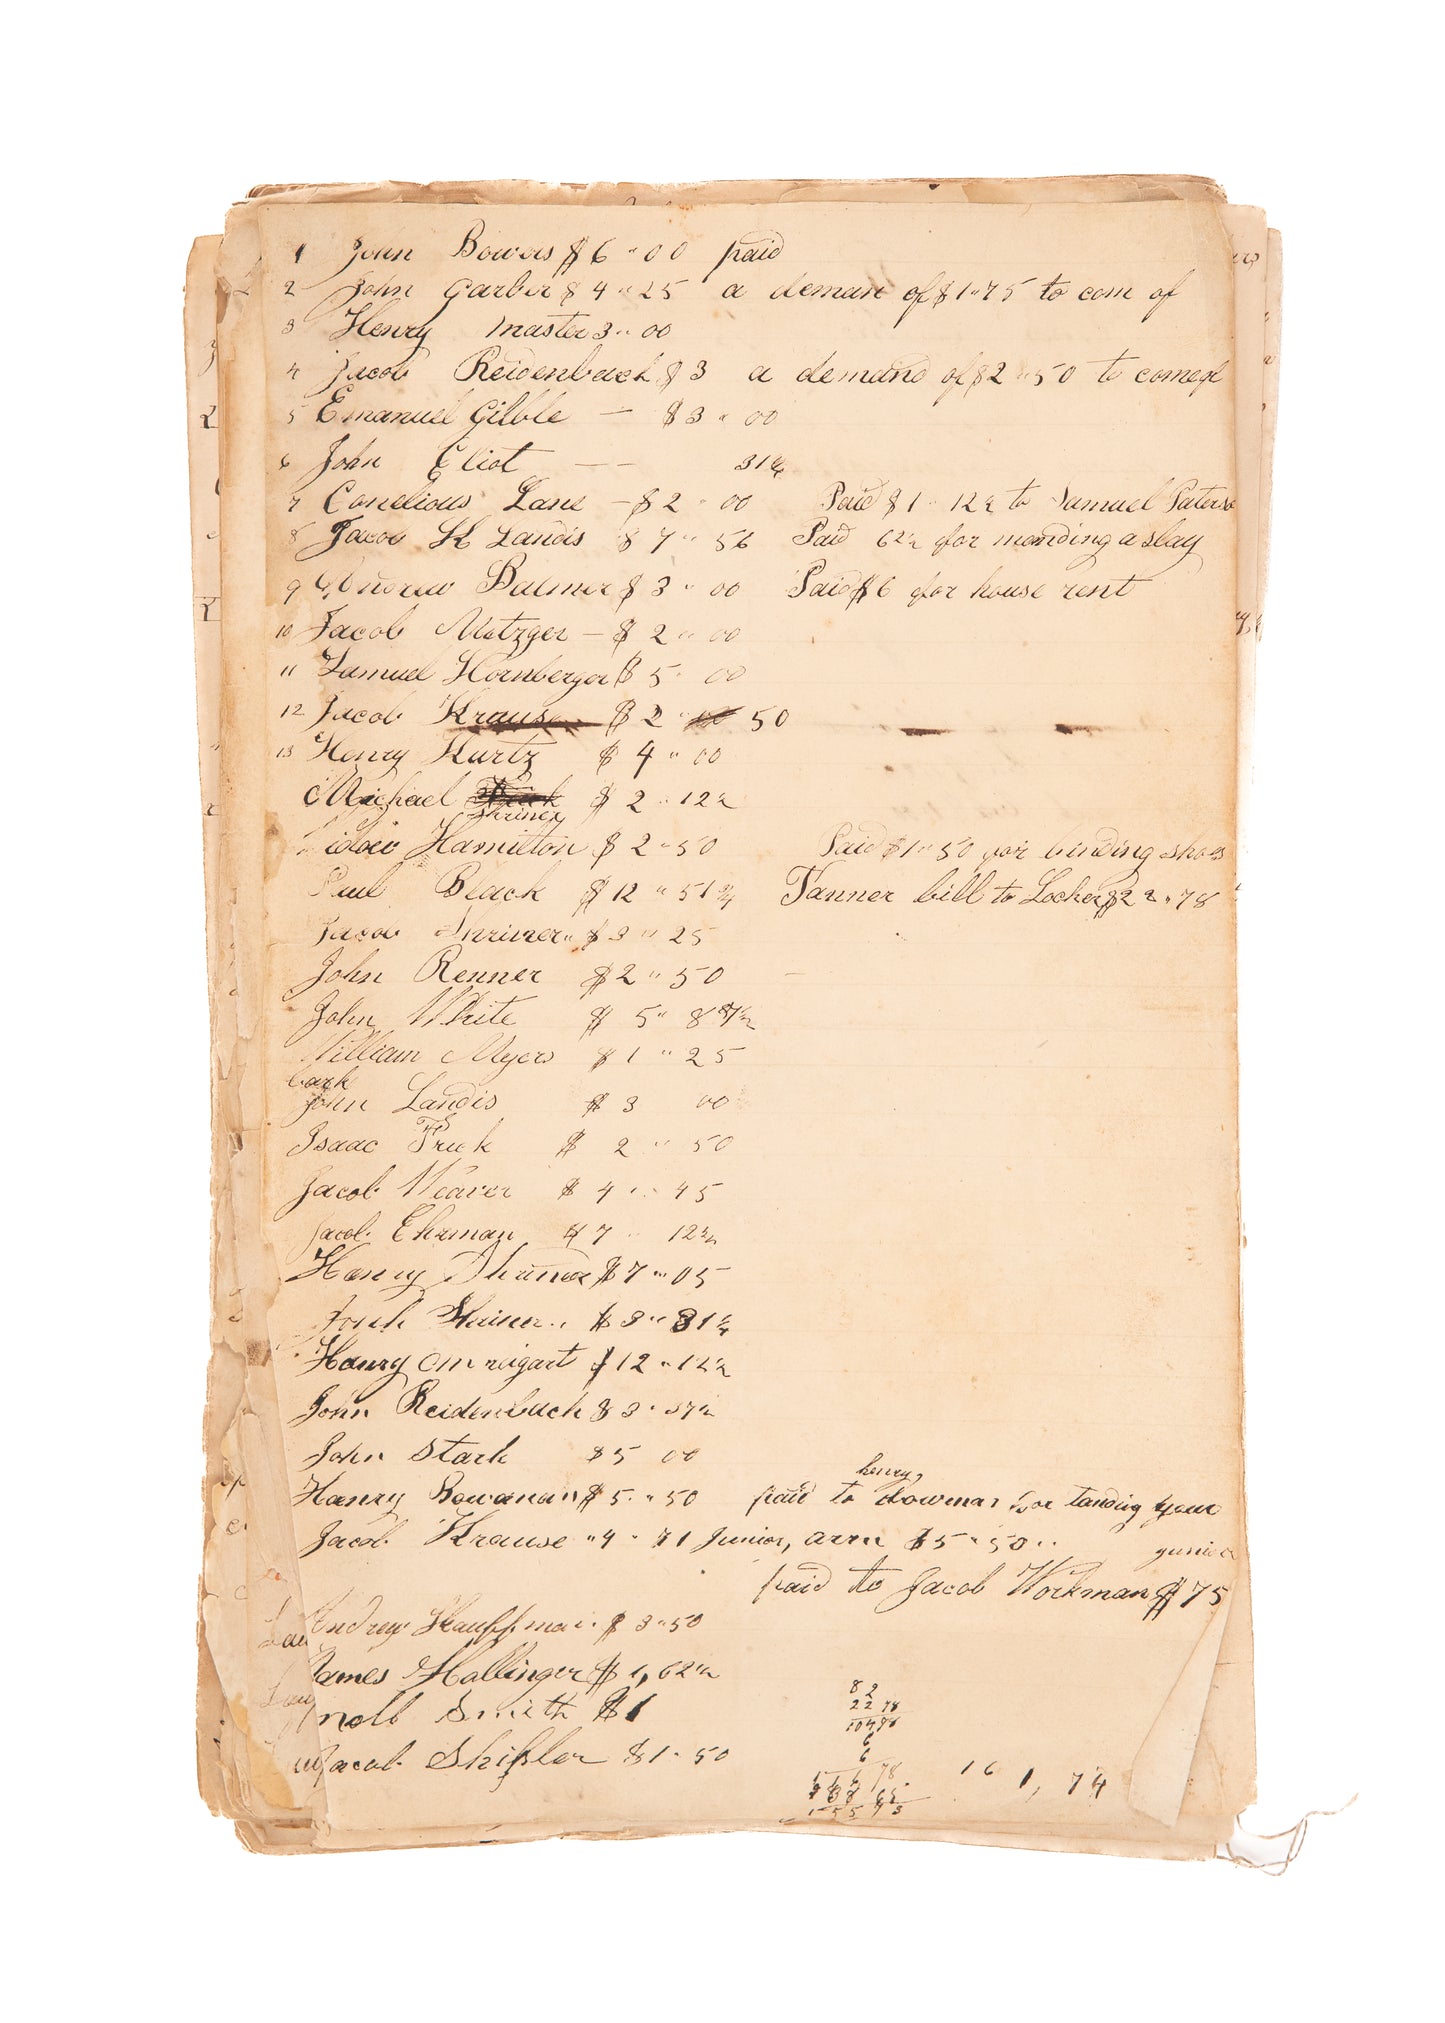 1 John Bowers $6 " 00 paid
2 John Garber $4 " 25 a deman of $1 " 75 to com of
3 Henry master 3 " 00
4 Jacob Reidenbach $3 a demand of $2 " 50 to come of
5 Emanuel Gibble — $3 " 00
6 John Eliot — — 31¼
7 Conelious Lane — $2 " 00 Paid $1 " 12½ to Samuel Paterso
8 Jacob K Landis $7 " 56 Paid 62½ for mending a slay
9 Andrew Balmer $3 " 00 Paid $6 for house rent
10 Jacob Metzger — $2 " 00
11 Samuel Hornberger $5 " 00
12 Jacob Krause $2 " 50
13 Henry Kurtz $4 " 00
Michael $2 " 12½
Shriner
Hamilton $2 " 50 Paid $1 " 50 for binding shoes
Paul Black $12 " 51¾ Tanner bill to Locher $22 " 78
Jacob Shriner " $3 " 25
John Renner $2 " 50
John White $5 " 8
William Myers $1 " 25
bark
John Landis $3 00
Isaac Frick $2 " 50
Jacob Weaver $4 " 45
Jacob Ehrman $7 " 12½
Henry Shriner $7 " 05
$3 " 31¼
Henry $12 " 12½
John Reidenbach $3 " 37½
John Stark $5 00
henry,
Henry Bowman $5 " 50 paid to Bowman for tanding your
Jacob Krause " 4 " 71 Junior, $5 " 50 "
junior
paid to Jacob Workman $75
Andrew Kauffman $3 " 50
James Hollinger $1, 62½
Smith $1
Jacob Shißler $1 " 50
82
22 78
104 78
6
6
16 1, 74